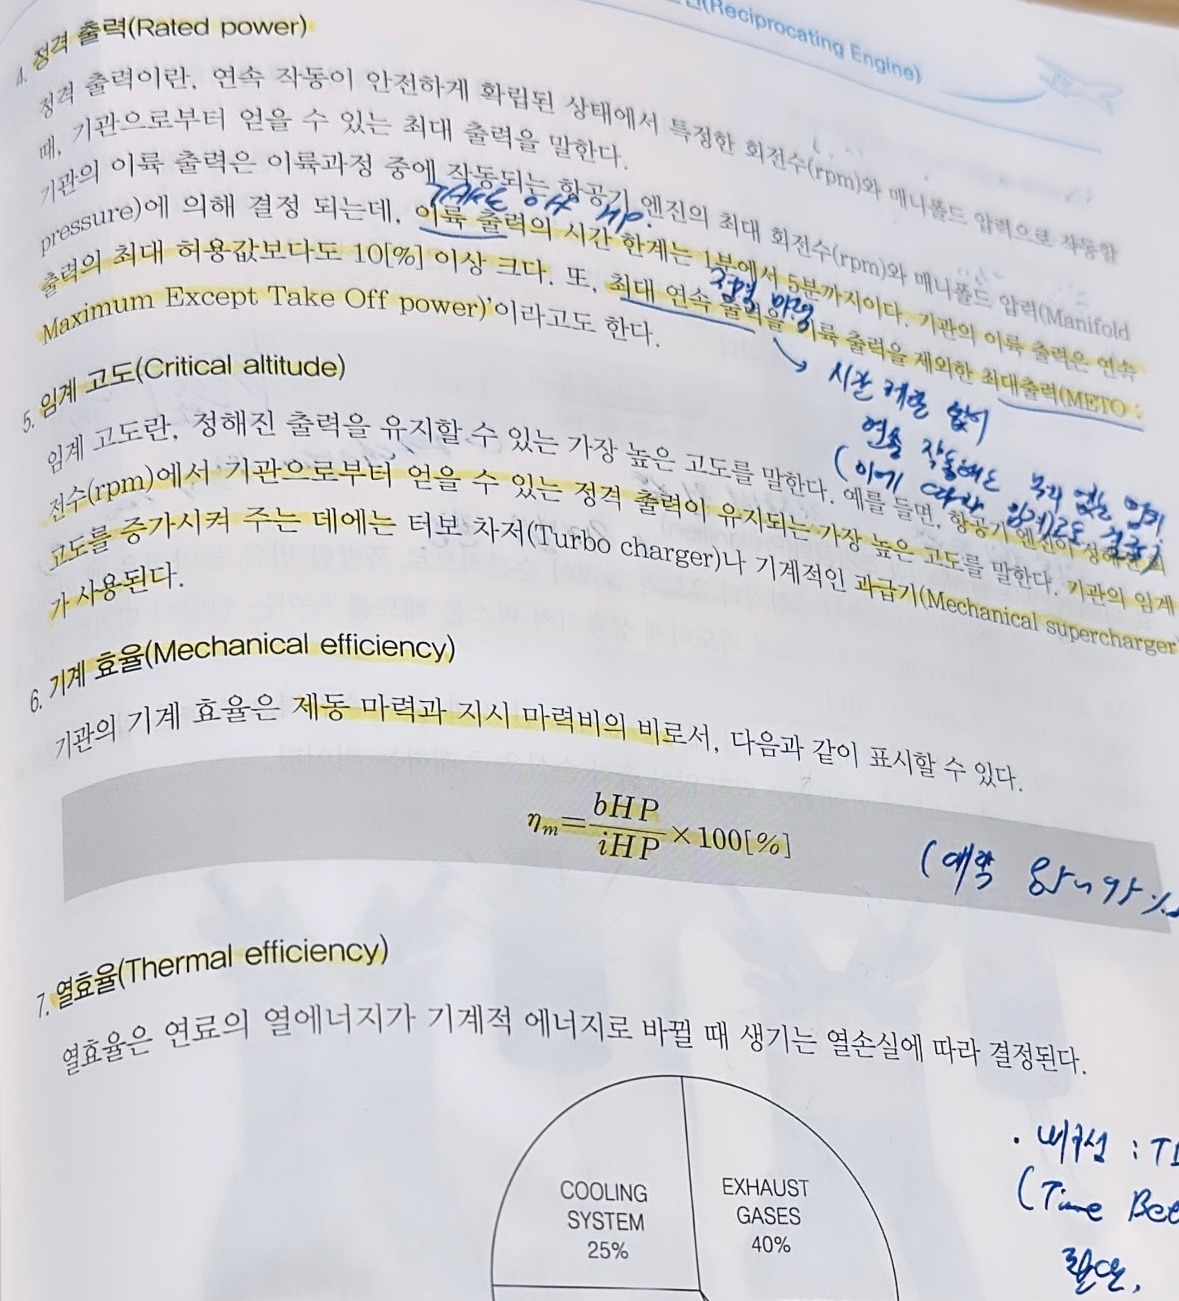 (Reciprocating Engine)
4. 정격 출력(Rated power)
정격 출력이란, 연속 작동이 안전하게 확립된 상태에서 특정한 회전수(rpm)와 매니폴드 압력으로 작동할
때, 기관으로부터 얻을 수 있는 최대 출력을 말한다.
기관의 이륙 출력은 이륙과정 중에 작동되는 항공기 엔진의 최대 회전수(rpm)와 매니폴드 압력(Manifold
TAKE Off HP.
pressure)에 의해 결정 되는데, 이륙 출력의 시간 한계는 1분에서 5분까지이다. 기관의 이륙 출력은 연속
정격 마력
출력의 최대 허용값보다도 10[%] 이상 크다. 또, 최대 연속 출력을 이륙 출력을 제외한 최대출력(METO :
Maximum Except Take Off power)'이라고도 한다.
시간 제한 없이
연속 작동해도 무리 없는 마력
(이에 따라 임계고도 결정)
5. 임계 고도(Critical altitude)
임계 고도란, 정해진 출력을 유지할 수 있는 가장 높은 고도를 말한다. 예를 들면, 항공기 엔진이 정해진 회
전수(rpm)에서 기관으로부터 얻을 수 있는 정격 출력이 유지되는 가장 높은 고도를 말한다. 기관의 임계
고도를 증가시켜 주는 데에는 터보 차저(Turbo charger)나 기계적인 과급기(Mechanical supercharger)
가 사용된다.
6. 기계 효율(Mechanical efficiency)
기관의 기계 효율은 제동 마력과 지시 마력비의 비로서, 다음과 같이 표시할 수 있다.
η_m = bHP / iHP × 100[%]
(대략 85~95%
7. 열효율(Thermal efficiency)
열효율은 연료의 열에너지가 기계적 에너지로 바뀔 때 생기는 열손실에 따라 결정된다.
COOLING
SYSTEM
25%
EXHAUST
GASES
40%
(Time